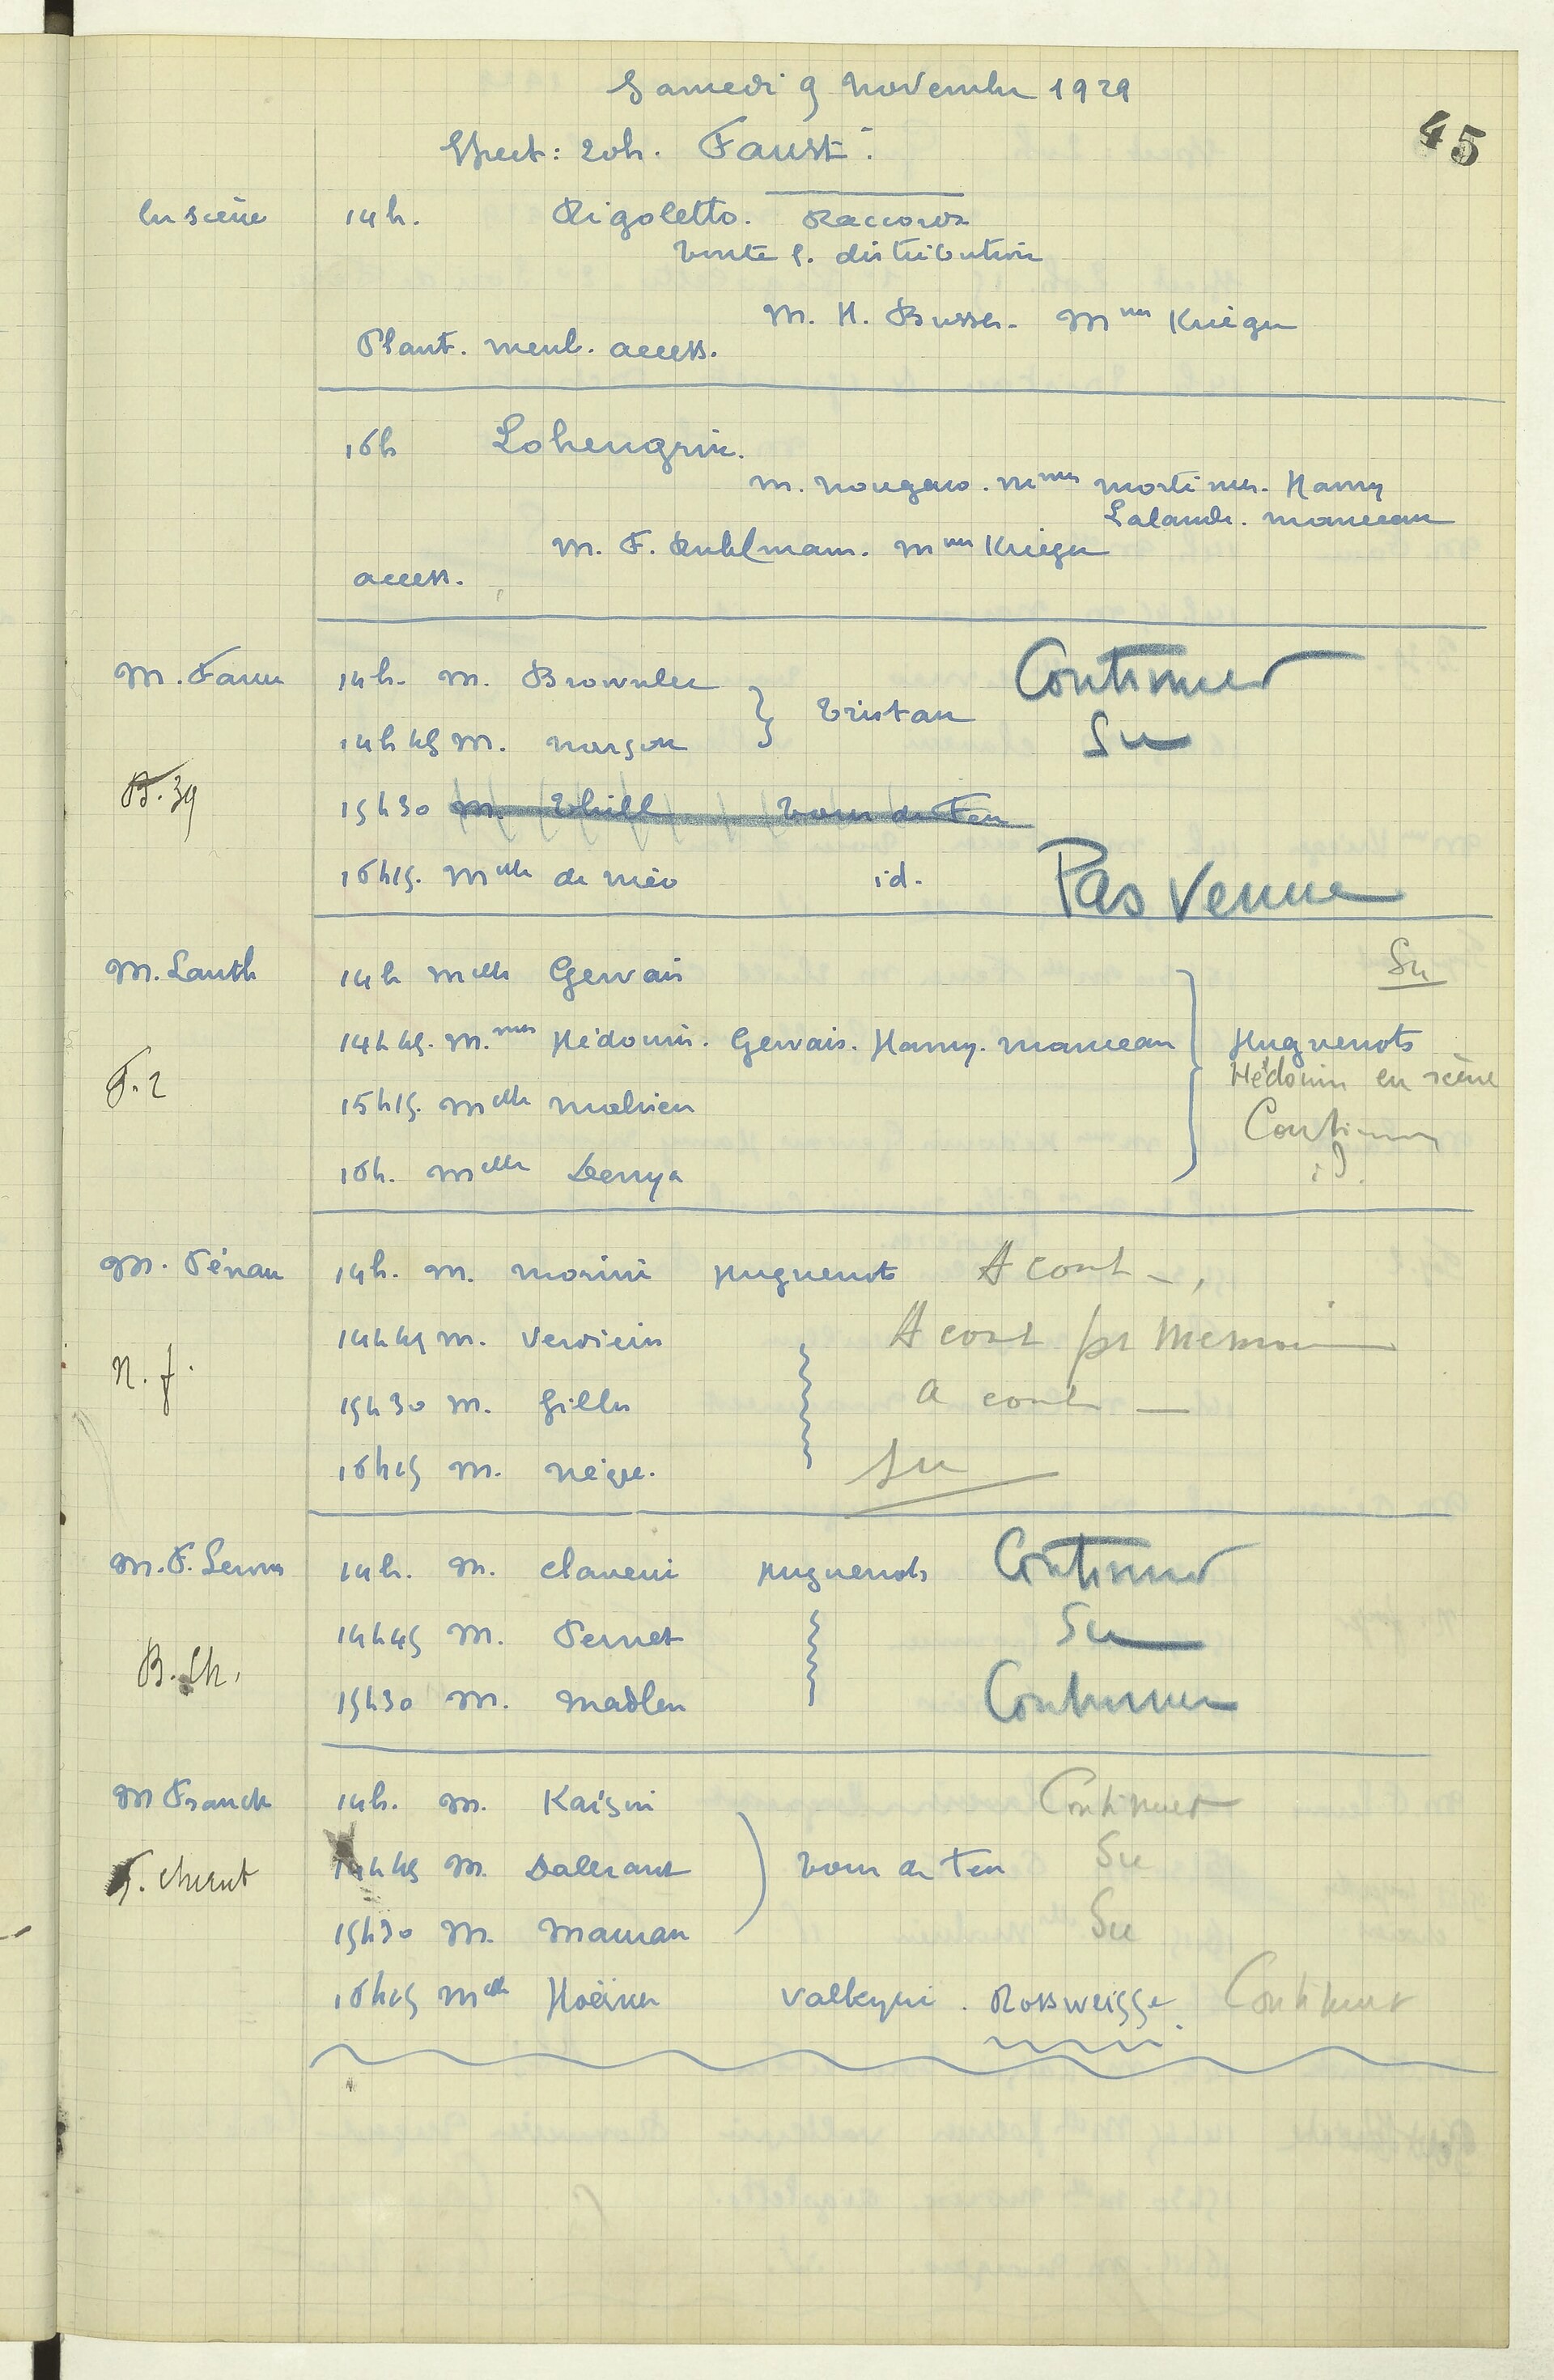 Samedi 9 Novembre 1929
45
Spect: 20h. Faust.
En scène 14h. Rigoletto. Raccords
toute l. distribution
M. H. Busser. Mmes Krieger
Plant. meub. access.
16h Lohengrin.
M. Nougaro. Mmes Mortimer. Hamy
Lalande. Manceau
M. F. Ruhlmann. Mmes Krieger
access.
M. Faure 14h. M. Brownlee } Tristan Continuer
14h45 M. Narçon Su
B.39 15h30 M. Thill Tour de Feu
16h15. Melle de Méo id. Pas Venue
M. Lauth 14h Melle Gervais Su
14h45. M.mes Hédouin. Gervais. Hamy. Manceau } Huguenots
Hédouin en scène
F.2 15h15. Melle Mahieu Continuer
16h. Melle Denya id.
M. Fénan 14h. M. Morini Huguenots A cont -
14h45 M. Verdière A cont pr Memoi
N. f. 15h30 M. Gilles a cont —
16h15 M. Nègre. Su
M. F. Leroux 14h. M. Claverie Huguenots Continuer
14h45 M. Pernet Su
B. Ch. 15h30 M. Madlen Continuer
M Franck 14h. M. Kaisin Continuer
14h45 M. Dalerant ) Tour de Feu Su
15h30 M. Mauran Su
16h15 Melle Hoërner Valkyrie. Rossweisse. Continuer